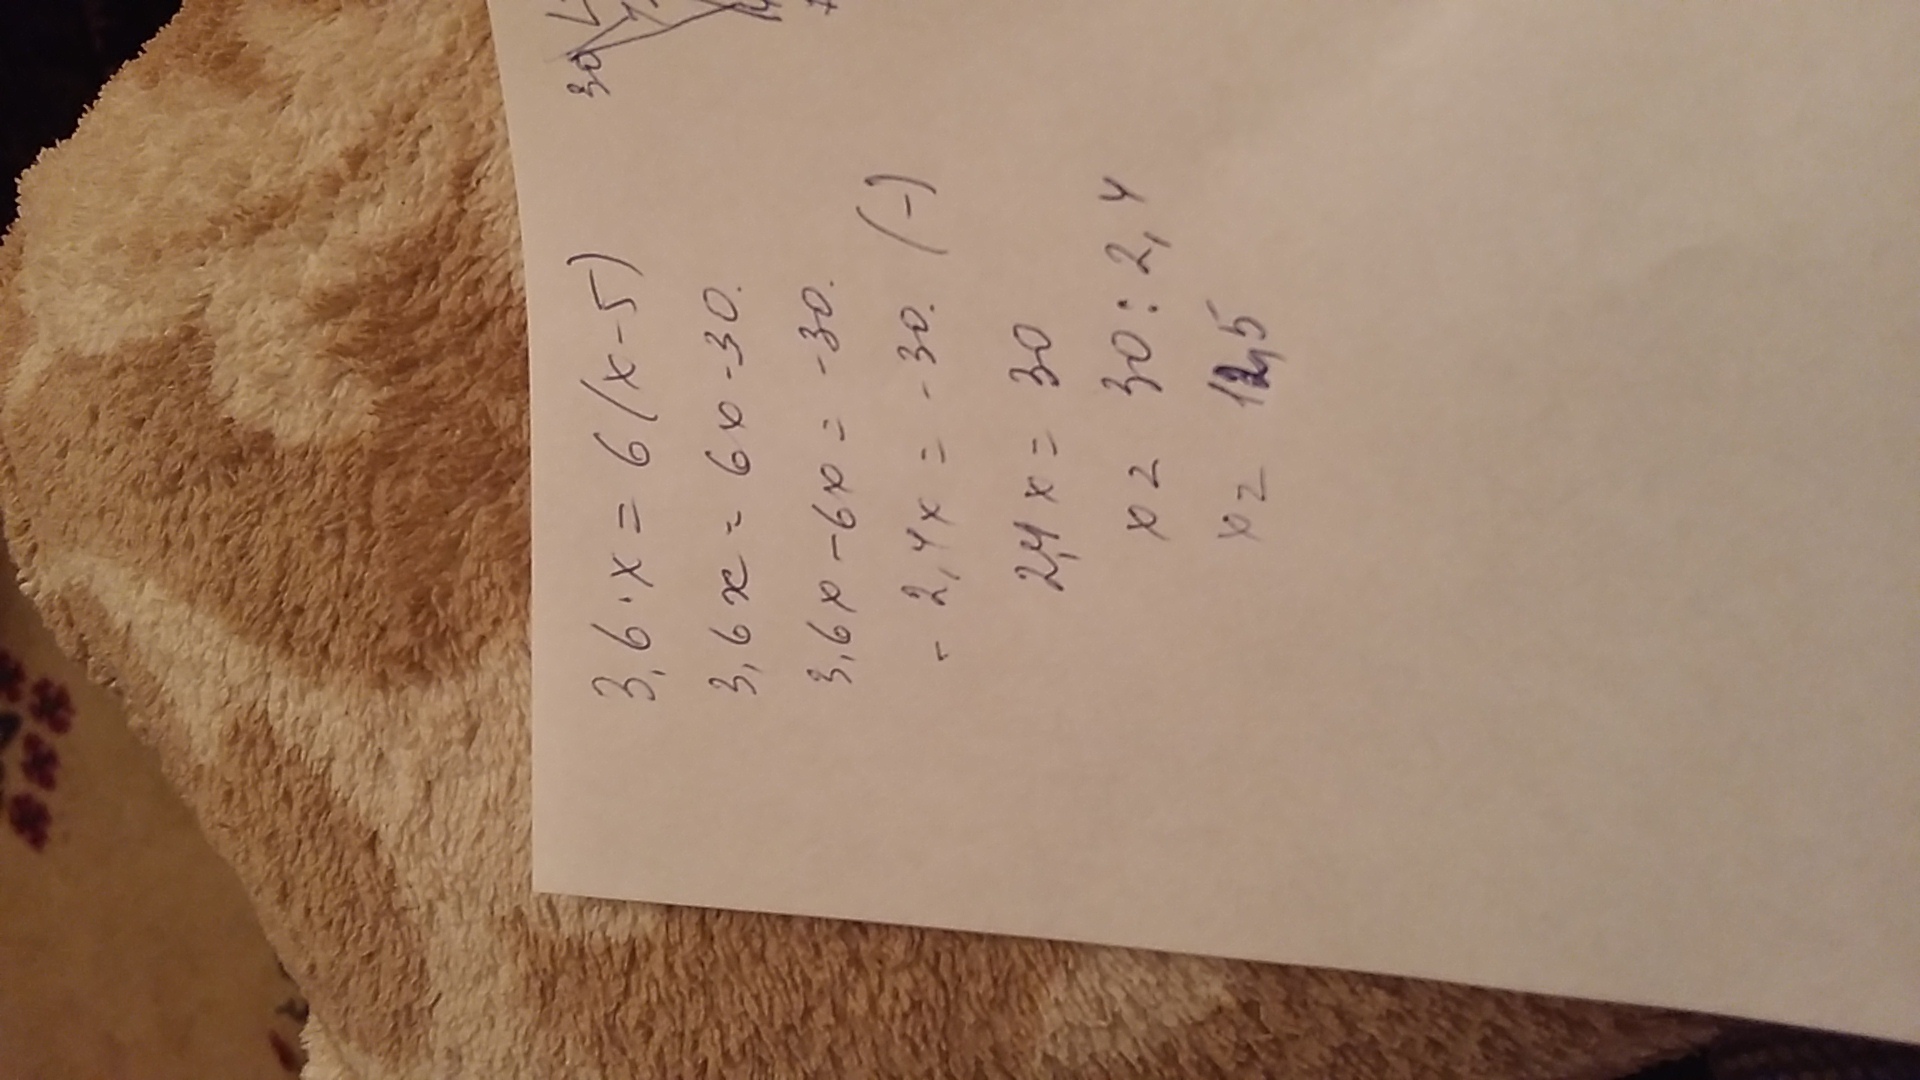 30
3,6·x = 6(x-5)
3,6x = 6x-30.
3,6x-6x = -30.
-2,4x = -30. (-)
2,4x = 30
x = 30:2,4
x = 12,5